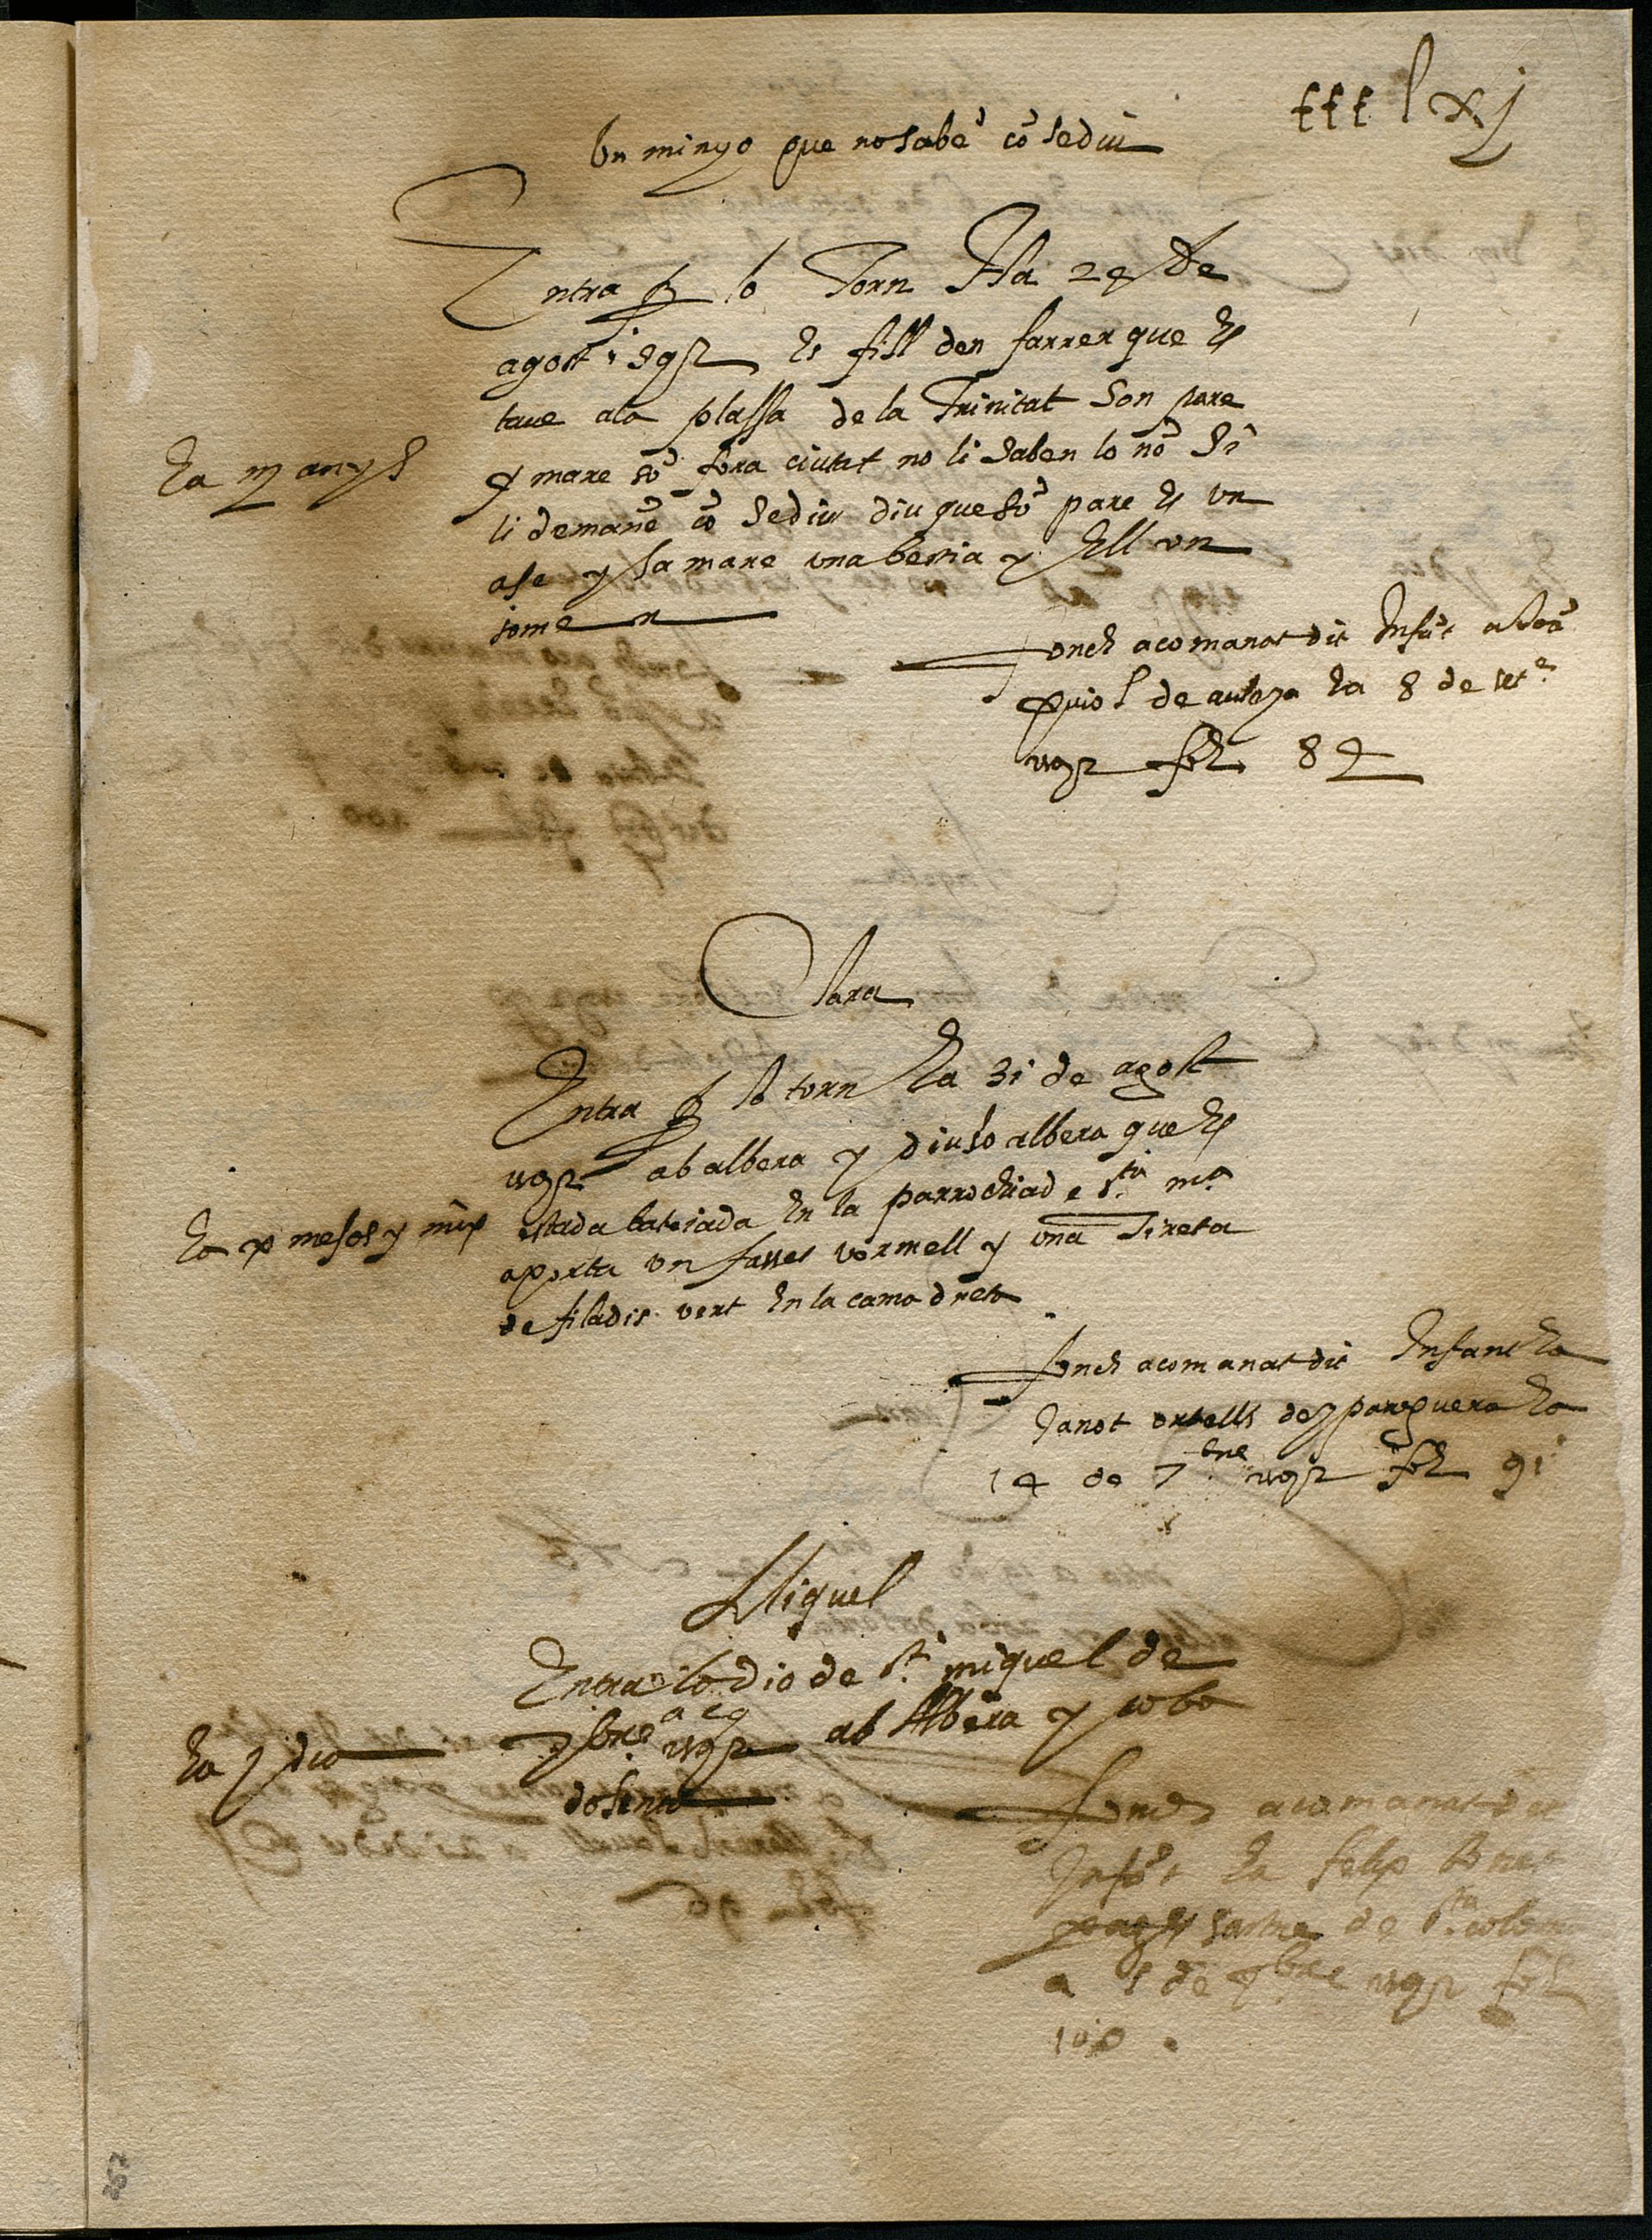 ccc lxj
Un minyo que no sabẽ cõ se diu
Entra p lo Torn Ha 29 de
agost 1592 es fill den farrer que es
tave ala plassa de la Trinitat Son pare
y mare sõ fora ciutat no li saben lo nõ Si
li demanẽ cõ se diu diu que sõ pare es un
ase y sa mare una bestia y Ell un
somer
ha iij anys
fonch acomanat dit Infãt a Joã
puiol de ha 8 de set.e
1592 fol. 89
Clara
Entra p lo torn ha 31 de agost
1592 ab albera y diu lo albera que es
estada batejada en la parrochia de S.ta m.a
aporta un fasset vermell y una Tireta
de filadis vert en la cama dreta
ha x mesos y mig
fonch acomanat dit Infant ha
Janot ortells desparaguera ha
14 de 7bre 1592 fol. 91
Miquel
Entra lo dia de S.t miquel de
7bre a 29 1592 ab Albera y roba
dolenta
ha j dia
fonch acomanat dit
Infãt ha felip
pages sastre de S.ta colom
a 5 de 9bre 1592 fol.